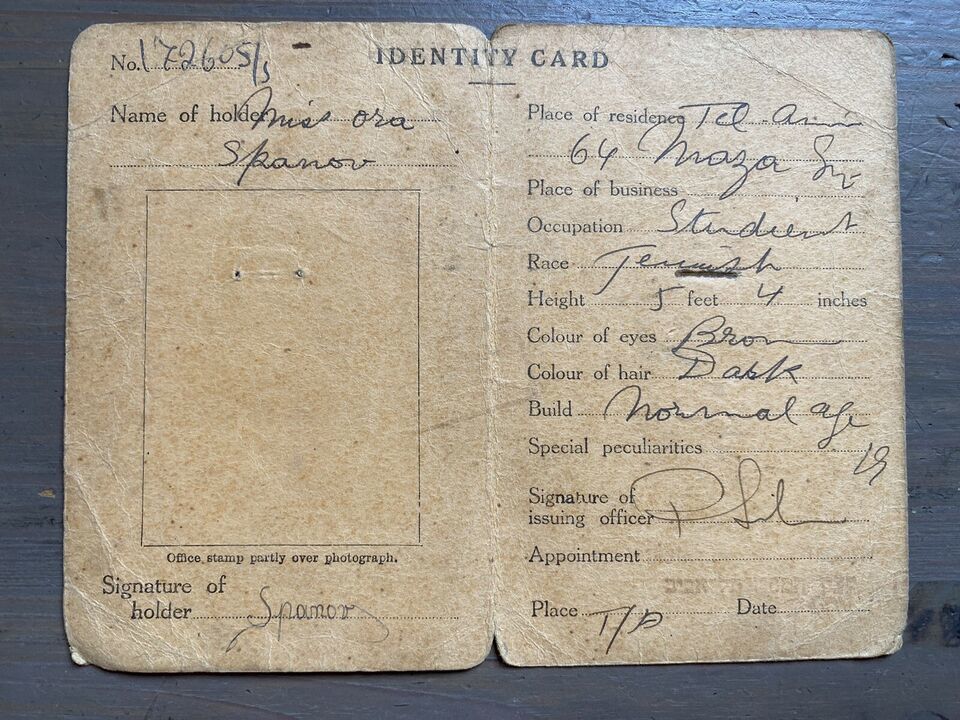 IDENTITY CARD
No. 172605/s
Name of holder Miss ora
Spanov
Office stamp partly over photograph.
Signature of
holder Spanov
Place of residence Tel-Aviv
64 Maza Str
Place of business
Occupation Student
Race Jewish
Height 5 feet 4 inches
Colour of eyes Brown
Colour of hair Dark
Build Normal age
19
Special peculiarities
Signature of
issuing officer
Appointment
Place Date